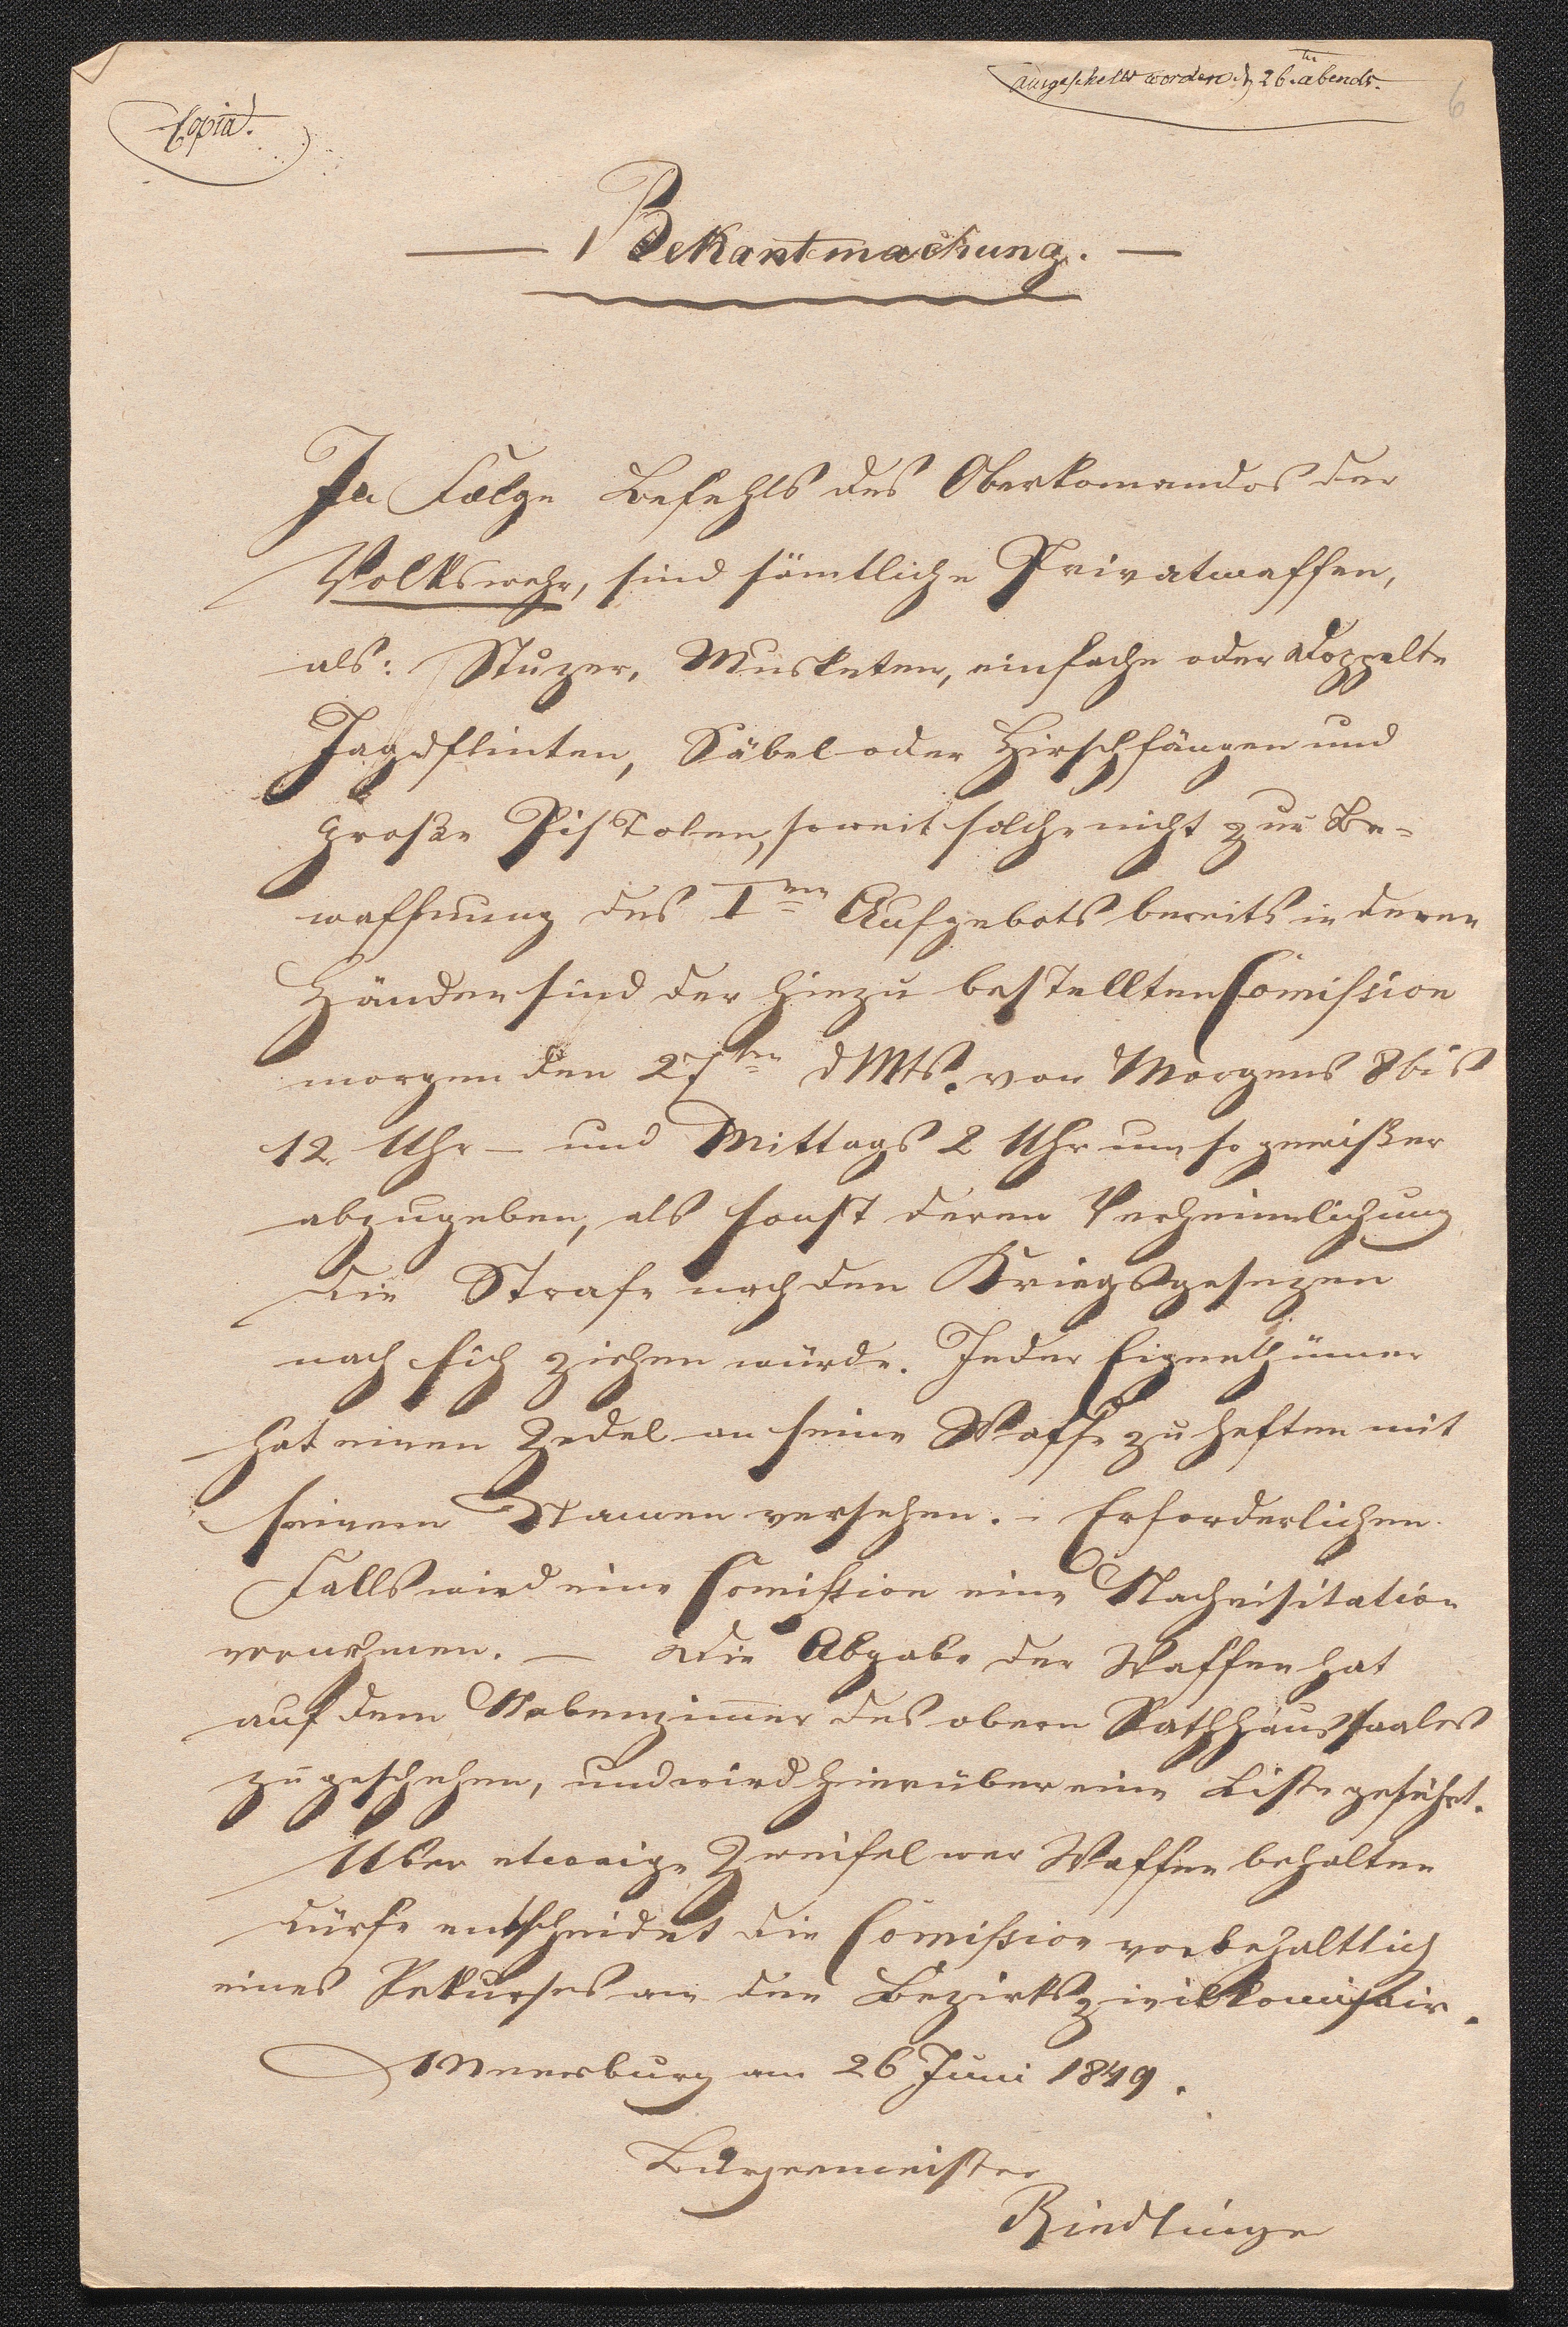 Copia.
ausgeschellt worden d 26ten abends.
6
— Bekantmachung. —
In Folge Befehls des Oberkomandos der
Volkswehr, sind sämtliche Privatwaffen,
als: Stuzer, Musketen, einfache oder doppelte
Jagdflinten, Säbel oder Hirschfänger und
große Pistolen, soweit solche nicht zur Be-
waffnung des Iten Aufgebots bereits in deren
Händen sind der hiezu bestellten Comission
morgen den 27ten dMts. von Morgens 8 bis
12 Uhr – und Mittags 2 Uhr um so gewißer
abzugeben, als sonst deren Verheimlichung
die Strafe nach den Kriegsgesezen
nach sich ziehen würde. Jeder Eigenthümer
hat einen Zedel an seine Waffe zu heften mit
seinem Namen versehen. – Erforderlichen
Falls wird eine Comission eine Nachvisitation
vornehmen. — Die Abgabe der Waffen hat
auf dem Nebenzimer des obern Rathhaussaales
zu geschehen, und wird hierüber eine Liste geführt.
Uber etwaige Zweifel wer Waffen behalten
dürfe entscheidet die Comission vorbehaltlich
eines Rekurses an den Bezirkszivilkomisair.
Meersburg am 26 Juni 1849.
Bürgermeister
Riedlinger